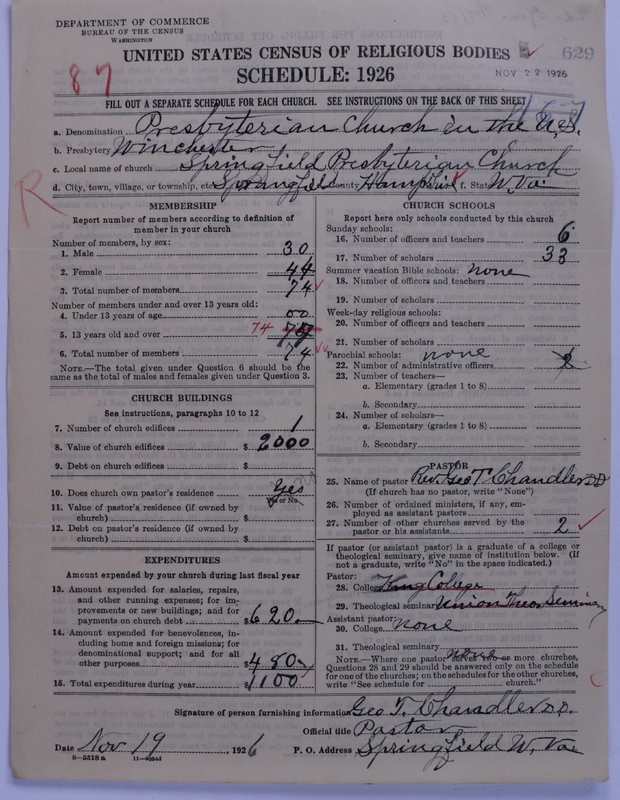 DEPARTMENT OF COMMERCE
BUREAU OF THE CENSUS
WASHINGTON
UNITED STATES CENSUS OF RELIGIOUS BODIES
629
SCHEDULE: 1926
NOV 22 1926
87
FILL OUT A SEPARATE SCHEDULE FOR EACH CHURCH. SEE INSTRUCTIONS ON THE BACK OF THIS SHEET
167
a. Denomination Presbyterian Church in the U.S.
b. Presbytery Winchester
c. Local name of church Springfield Presbyterian Church
d. City, town, village, or township, etc. Springfield County Hampshire f. State W. Va.
R
MEMBERSHIP
Report number of members according to definition of
member in your church
Number of members, by sex:
1. Male 30
2. Female 44
3. Total number of members 74
Number of members under and over 13 years old:
4. Under 13 years of age 00
5. 13 years old and over 74 74
6. Total number of members 74
NOTE.—The total given under Question 6 should be the
same as the total of males and females given under Question 3.
CHURCH BUILDINGS
See instructions, paragraphs 10 to 12
7. Number of church edifices 1
8. Value of church edifices $ 2000
9. Debt on church edifices $
10. Does church own pastor's residence Yes
Yes or No
11. Value of pastor's residence (if owned by
church) $
12. Debt on pastor's residence (if owned by
church) $
EXPENDITURES
Amount expended by your church during last fiscal year
13. Amount expended for salaries, repairs,
and other running expenses; for im-
provements or new buildings; and for
payments on church debt $ 620.
14. Amount expended for benevolences, in-
cluding home and foreign missions; for
denominational support; and for all
other purposes $ 480
15. Total expenditures during year $ 1100
CHURCH SCHOOLS
Report here only schools conducted by this church
Sunday schools:
16. Number of officers and teachers 6
17. Number of scholars 33
Summer vacation Bible schools: none
18. Number of officers and teachers
19. Number of scholars
Week-day religious schools:
20. Number of officers and teachers
21. Number of scholars
Parochial schools: none
22. Number of administrative officers 2
23. Number of teachers—
a. Elementary (grades 1 to 8)
b. Secondary
24. Number of scholars—
a. Elementary (grades 1 to 8)
b. Secondary
PASTOR
25. Name of pastor Rev. Geo T. Chandler DD
(If church has no pastor, write "None")
26. Number of ordained ministers, if any, em-
ployed as assistant pastors
27. Number of other churches served by the
pastor or his assistants 2
If pastor (or assistant pastor) is a graduate of a college or
theological seminary, give name of institution below. (If
not a graduate, write "No" in the space indicated.)
Pastor:
28. College King College
29. Theological seminary Union Theo. Seminary
Assistant pastor:
30. College none
31. Theological seminary none
NOTE.—Where one pastor serves two or more churches,
Questions 28 and 29 should be answered only on the schedule
for one of the churches; on the schedules for the other churches,
write "See schedule for church."
Signature of person furnishing information Geo. T. Chandler D.D.
Official title Pastor
Date Nov 19, 1926 P. O. Address Springfield W. Va
8—5518 a